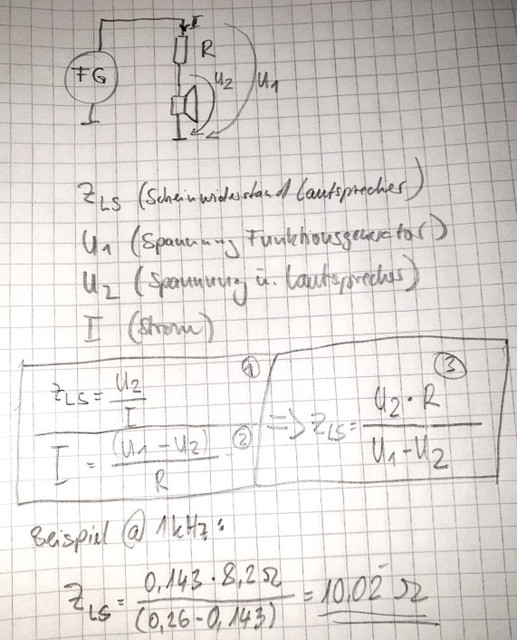 I
R
FG
U₂
U₁
Z_LS (Scheinwiderstand Lautsprecher)
U₁ (Spannung Funktionsgenerator)
U₂ (Spannung ü. Lautsprecher)
I (Strom)
Z_LS = U₂ / I ①
I = (U₁ - U₂) / R ②
=> Z_LS = U₂ · R / U₁ - U₂ ③
Beispiel @ 1kHz:
Z_LS = 0,143 · 8,2Ω / (0,26 - 0,143) = 10.02 Ω